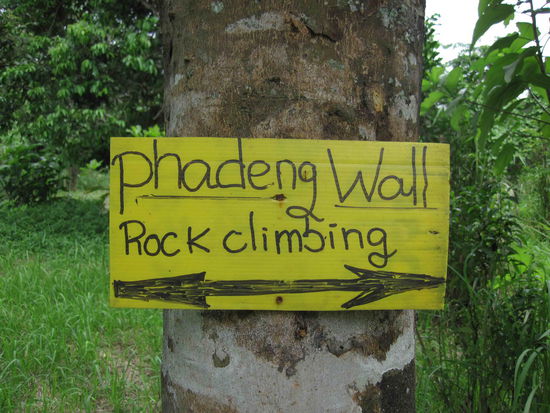 phadeng Wall
Rock climbing